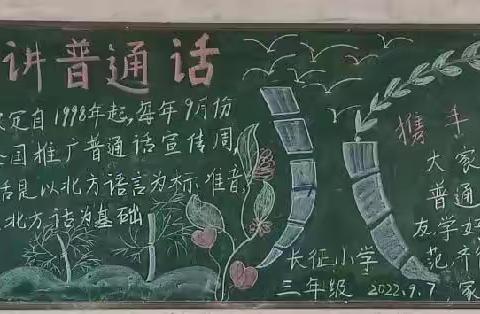 讲普通话
定自1998年起,每年9月份
全国推广普通话宣传周,
话是以北方语言为标准音,
北方话为基础
长征小学
三年级 2022.9.7
携手
大家
普通
友学好
范齐
家